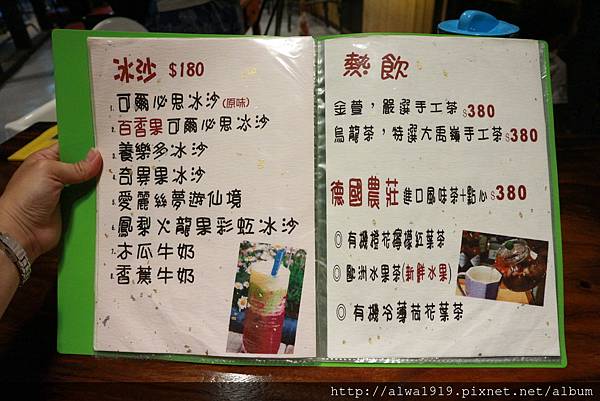 冰沙 $180
1. 可爾必思冰沙(原味)
2. 百香果可爾必思冰沙
3. 養樂多冰沙
4. 奇異果冰沙
5. 愛麗絲夢遊仙境
6. 鳳梨火龍果彩虹冰沙
7. 木瓜牛奶
8. 香蕉牛奶
熱飲
金萱，嚴選手工茶$380
烏龍茶，特選大禹嶺手工茶$380
德國農莊 進口風味茶+點心$380
◎ 有機橙花檸檬紅葉茶
◎ 歐洲水果茶(新鮮水果)
◎ 有機冷薄荷花葉茶
http://alwa1919.pixnet.net/album